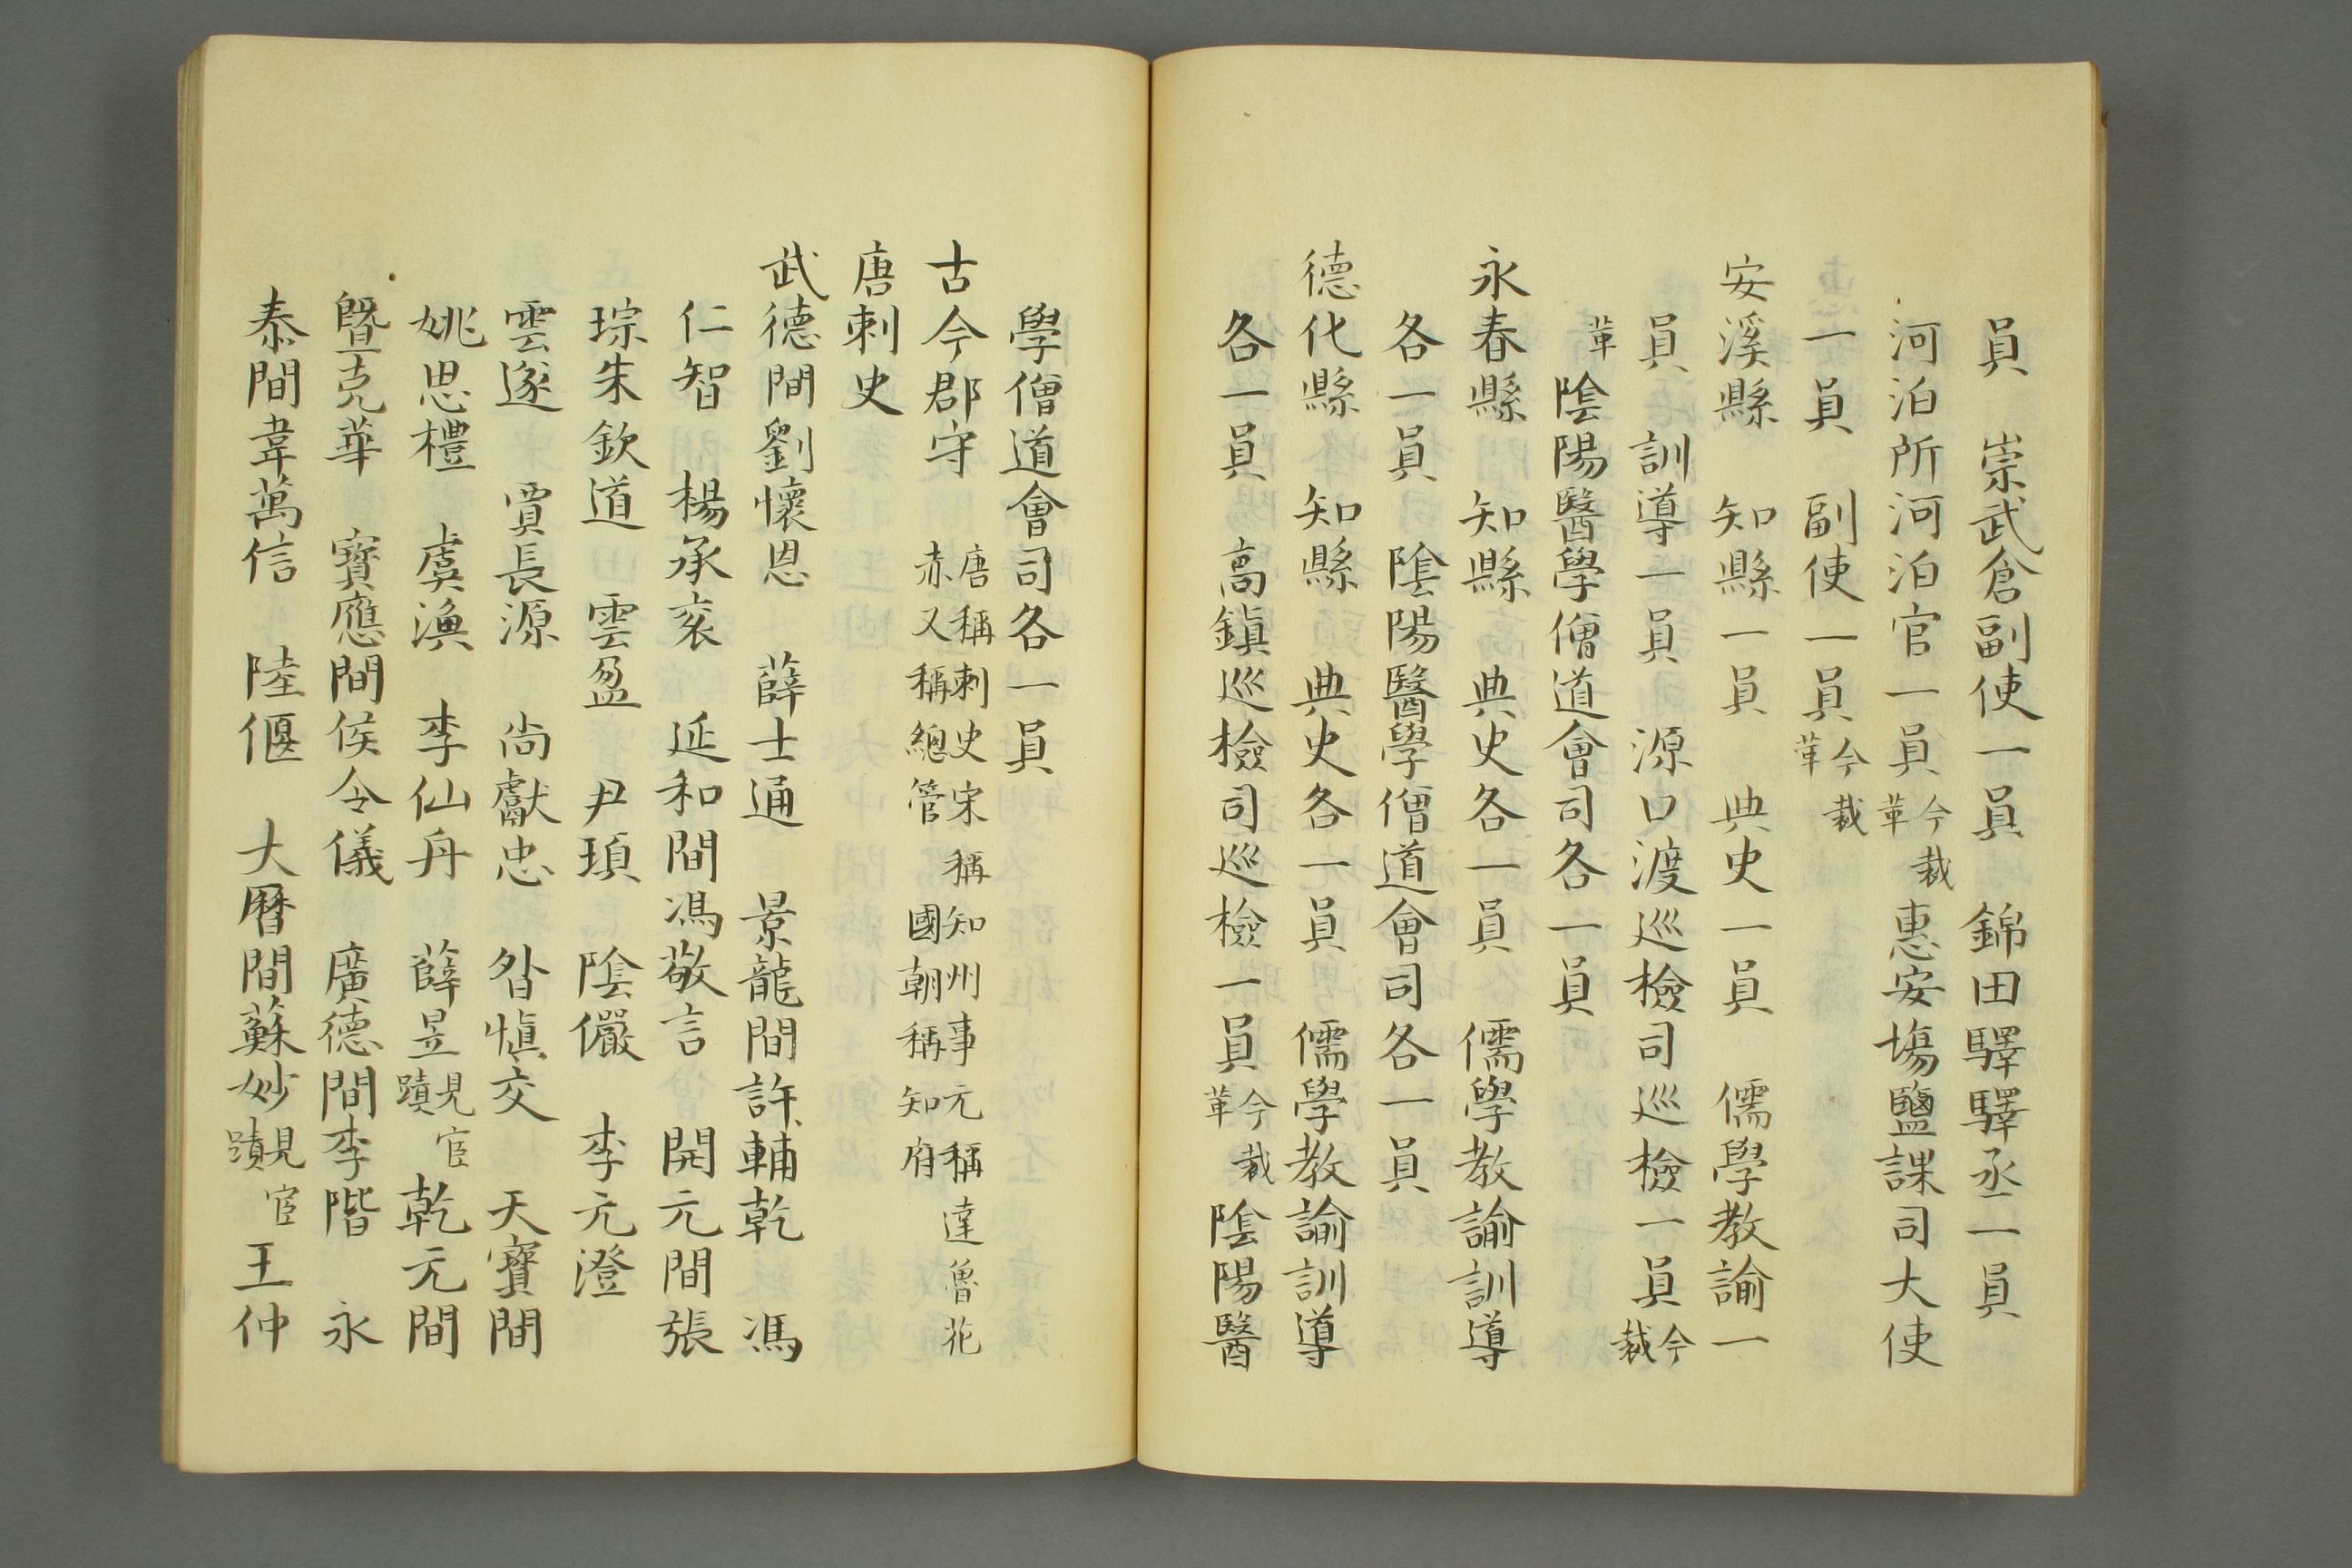 員　崇武倉副使一員　錦田驛驛丞一員
河泊所河泊官一員今裁革　惠安塲鹽課司大使
一員　副使一員今裁革
安溪縣　知縣一員　典史一員　儒學教諭一
員　訓導一員　源口渡巡檢司巡檢一員今裁
革　陰陽醫學僧道會司各一員
永春縣　知縣　典史各一員　儒學教諭訓導
各一員　陰陽醫學僧道會司各一員
德化縣　知縣　典史各一員　儒學教諭訓導
各一員　高鎮巡檢司巡檢一員今裁革　陰陽醫
學僧道會司各一員
古今郡守　唐稱刺史宋稱知州事元稱達魯花
赤又稱總管國朝稱知府
唐刺史
武德間劉懷恩　薛士通　景龍間許輔乾　馮
仁智　楊承衮　延和間馮敬言　開元間張
琮朱欽道　雲盈　尹頊　陰儼　李元澄
雲遂　賈長源　尚獻忠　昝慎交　天寶間
姚思禮　虞漁　李仙舟　薛昱見宦蹟　乾元間
暨克華　寶應間侯令儀　廣德間李階　永
泰間韋萬信　陸偃　大曆間蘇妙見宦蹟　王仲